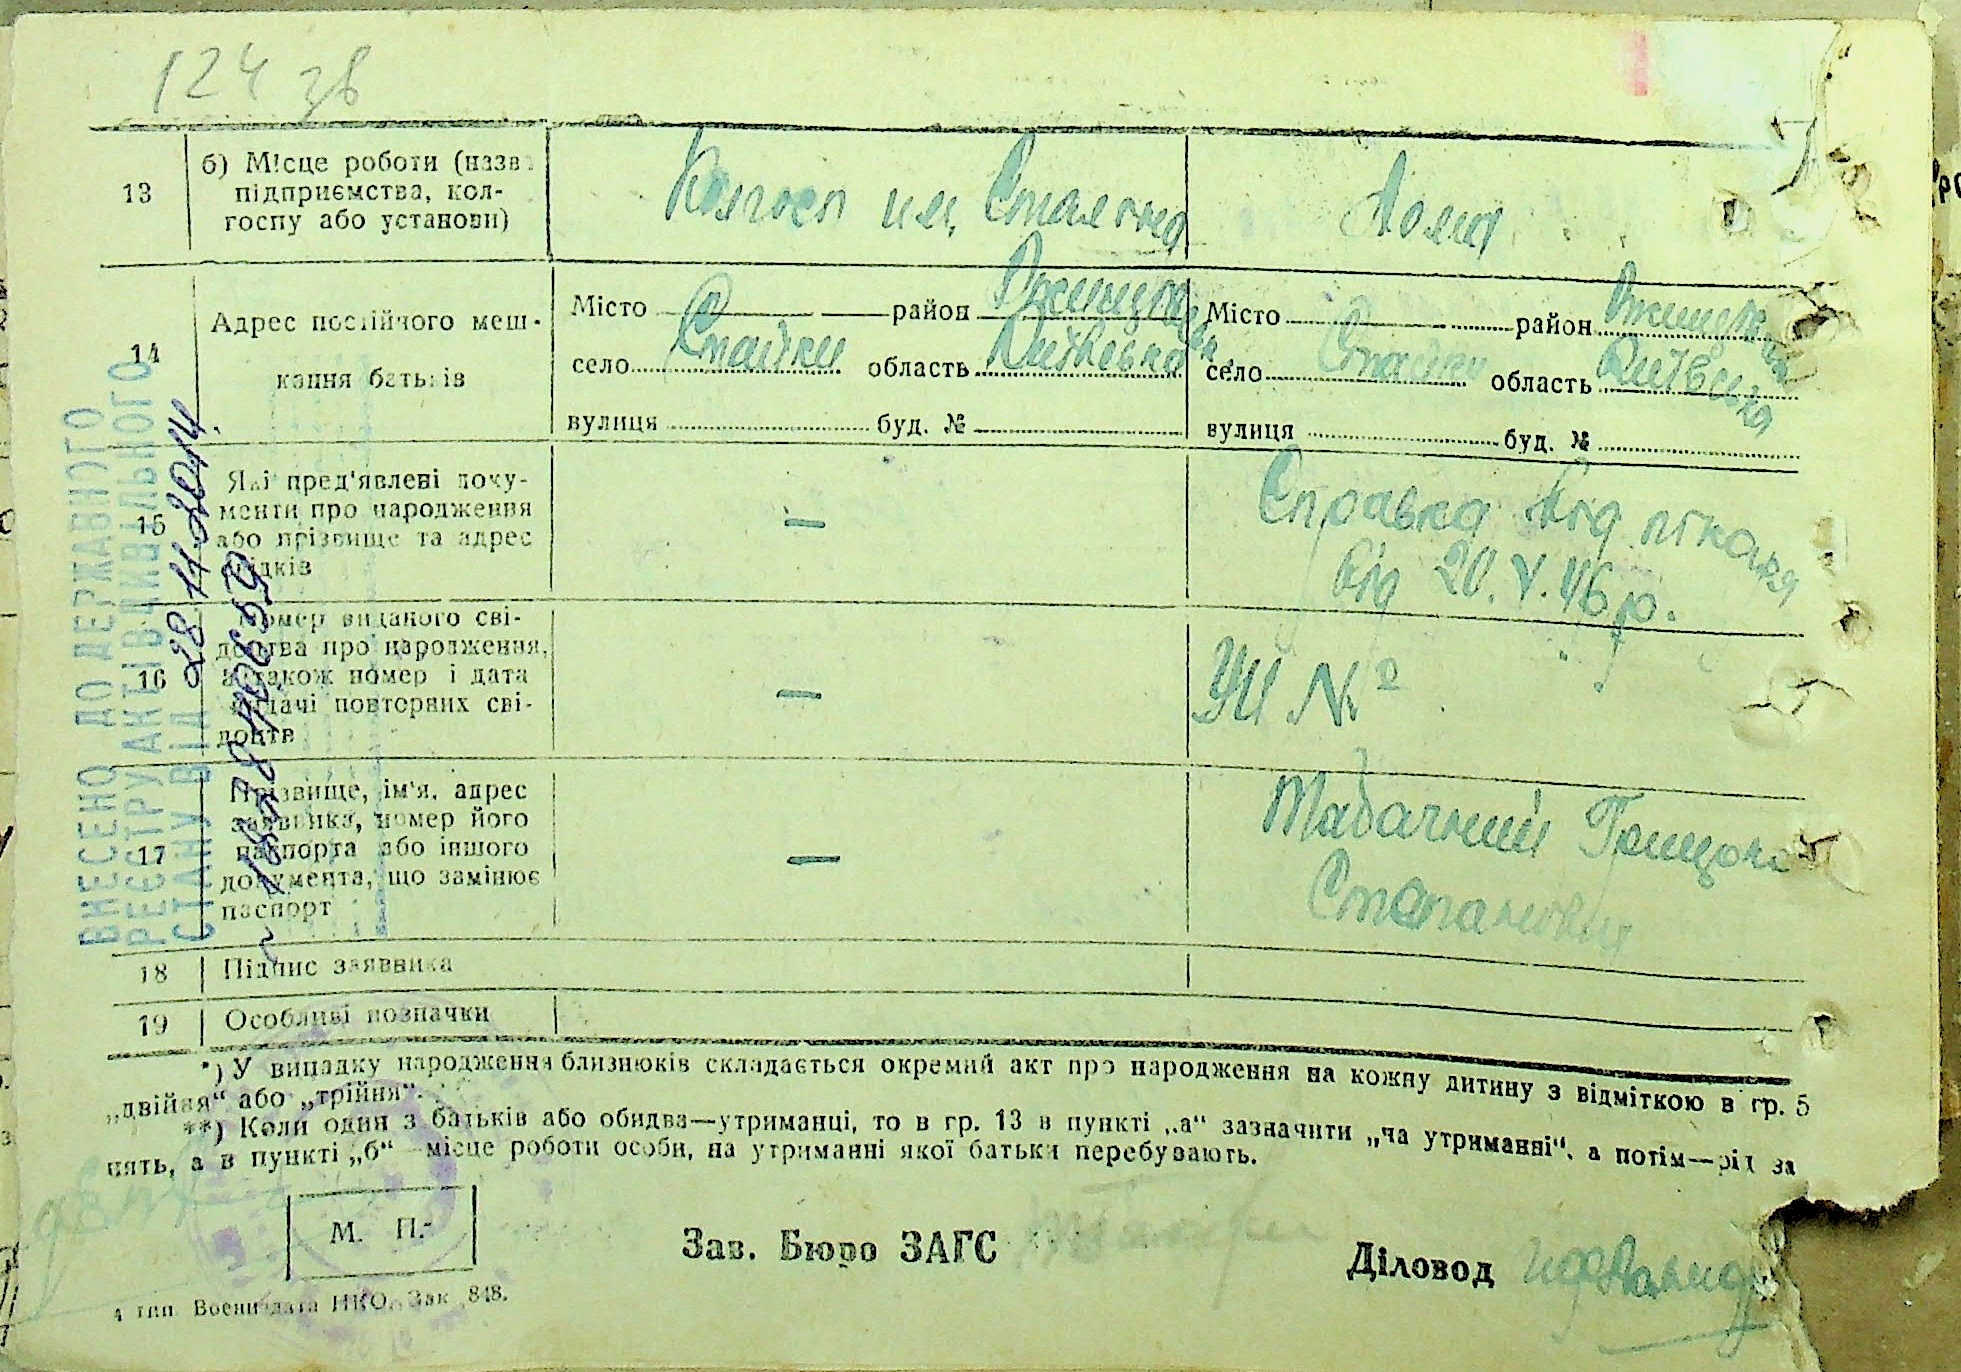 124 зв
13
б) Місце роботи (назва
підприємства, кол-
госпу або установи)
Колгосп им. Сталіна
Дома
14
Адрес постійного меш-
кання батьків
Місто район Ржищівськ
село Стайки область Київська
вулиця буд. №
Місто район Ржищівський
село Стайки область Київська
вулиця буд. №
15
Які пред'явлені доку-
менти про народження
або прізвище та адрес
свідків
—
Справка від лікаря
від 20.V.46 р.
16
Номер виданого сві-
доцтва про народження,
а також номер і дата
видачі повторних сві-
доцтв
—
УП №
17
Прізвище, ім'я, адрес
заявника, номер його
паспорта або іншого
документа, що замінює
паспорт
—
Табачний Грицько
Степанович
18 Підпис заявника
19 Особливі позначки
ВНЕСЕНО ДО ДЕРЖАВНОГО
РЕЄСТРУ АКТІВ ЦИВІЛЬНОГО
СТАНУ ВІД 28.11.2014.
*) У випадку народження близнюків складається окремий акт про народження на кожну дитину з відміткою в гр. 5
„двійня“ або „трійня“.
**) Коли один з батьків або обидва—утриманці, то в гр. 13 в пункті „а“ зазначити „на утриманні“, а потім—рід за
нять, а в пункті „б“—місце роботи особи, на утриманні якої батьки перебувають.
М. П.
Зав. Бюро ЗАГС
Діловод
4 тип. Воениздата НКО. Зак 848.